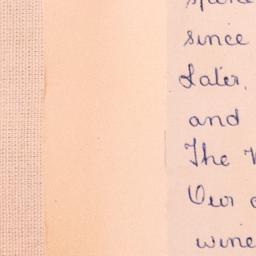 since
Later,
and
The
Our
wine